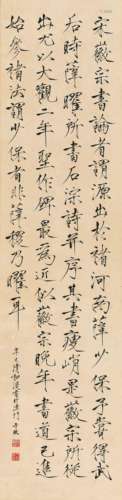 宋徽宗書論者謂源出於褚河南薛少保予嘗得武
后時薛曜所書石淙詩并序其書瘦峭果徽宗所從
出尤以大觀二年聖作碑最為近似徽宗晚年書道已進
始參褚法謂少保者非薛稷乃曜耳